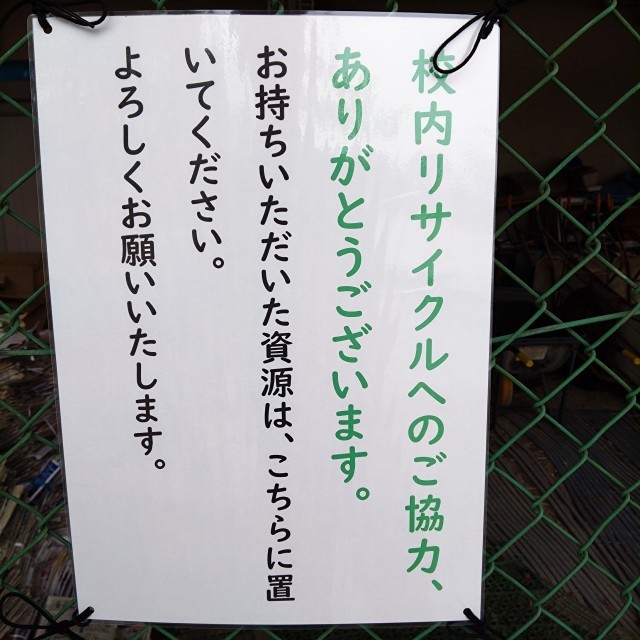 校内リサイクルへのご協力、
ありがとうございます。
お持ちいただいた資源は、こちらに置
いてください。
よろしくお願いいたします。